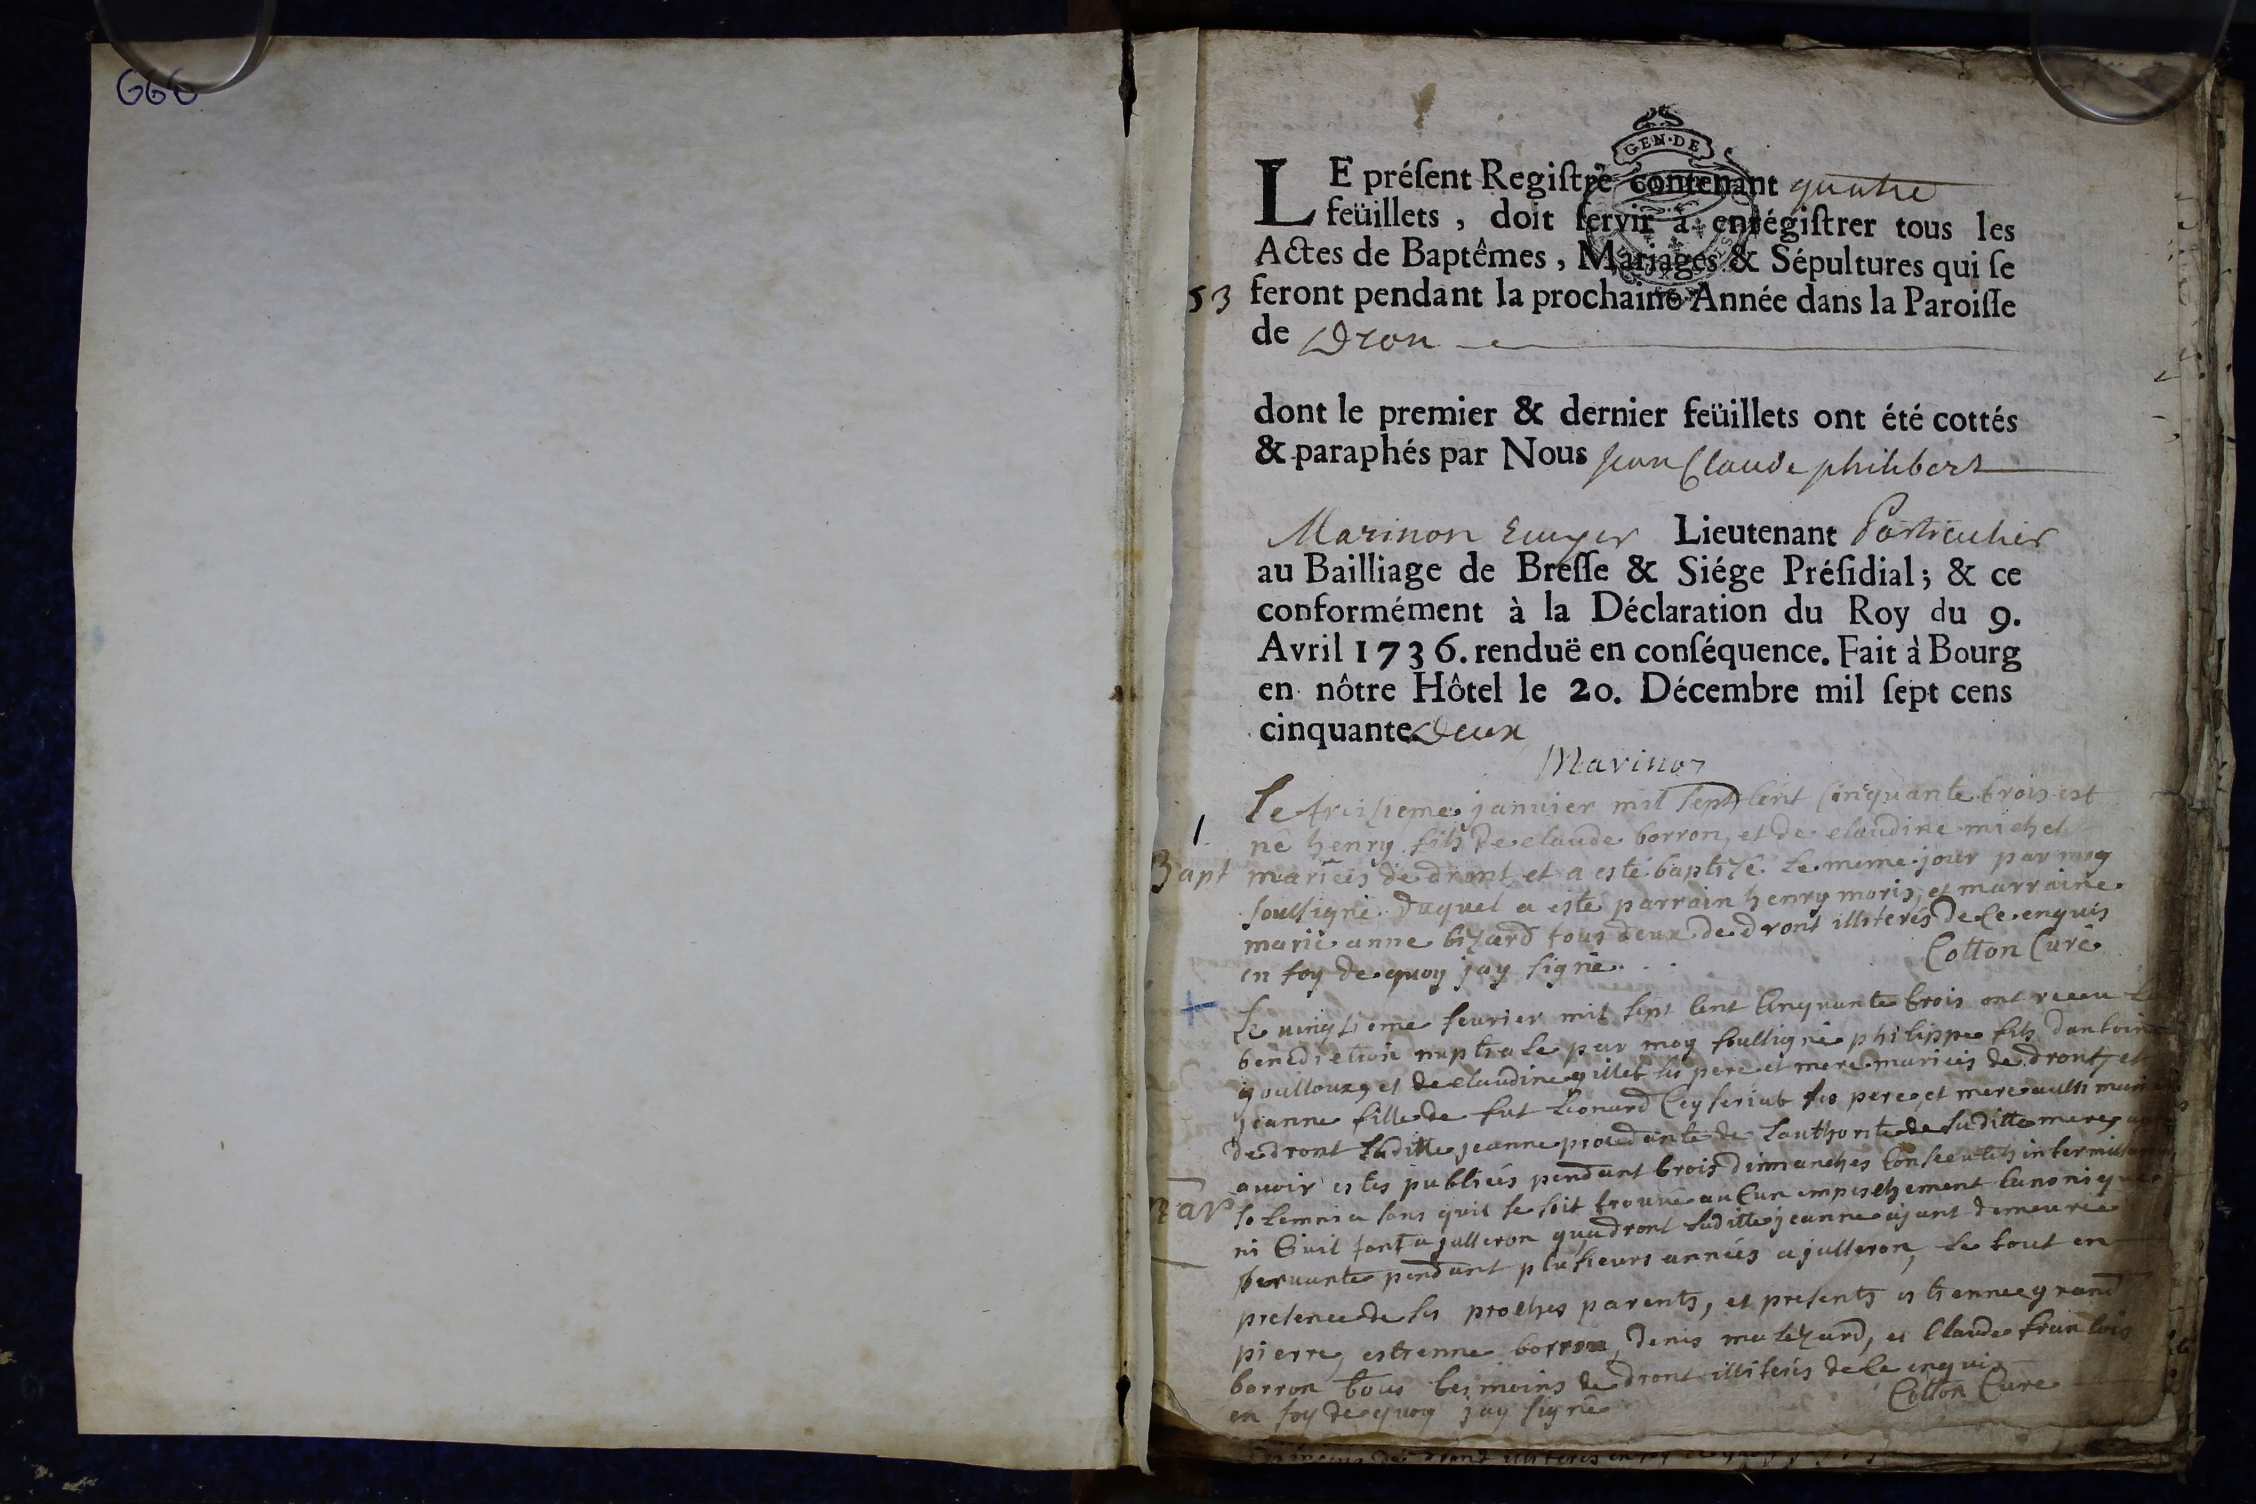 GG6
GEN·DE
LE préſent Regiſtre contenant quatre
feüillets, doit ſervir à enrégiſtrer tous les
Actes de Baptêmes, Mariages & Sépultures qui ſe
53 feront pendant la prochaine Année dans la Paroiſſe
de Dron
dont le premier & dernier feüillets ont été cottés
& paraphés par Nous Jean Claude philibert
Marinon Ecuyer Lieutenant Particulier
au Bailliage de Breſſe & Siége Préſidial; & ce
conformément à la Déclaration du Roy du 9.
Avril 1736. renduë en conſéquence. Fait à Bourg
en nôtre Hôtel le 20. Décembre mil ſept cens
cinquante Deux
Marinon
Le troisieme janvier mil sept cent cinquante trois est
1. né henry fils de claude borron, et de claudine michel
Bapt mariés de dront et a esté baptizé le meme jour par moy
soussigné duquel a esté parrain henry moris, et marraine
marie anne bizard tous deux de dront illiterés de ce enquis
en foy de quoy jay signé. Cotton Curé
+
Le vingtieme feurier mil sept cent cinquante trois ont receu la
benediction nuptiale par moy soussigné philippe fils dantoine
goulloux, et de claudine gillet ses pere et mere mariés de dront, et
jeanne fille de fut Leonard Ceyseriat ses pere, et mere aussi mariés
de dront laditte jeanne procedante de lauthorité de saditte mere
avoir estés publiés pendant trois dimanches consecutifs
mar solemnia sans quil se soit trouvé aucun empeschement canonique
ni Civil tant a jasseron qua dront laditte jeanne ayant demeurée
servante pendant plusieurs années a jasseron, le tout en
presence de ses proches parents, et presents estienne grand
pierre, estienne borron, denis malezard, et Claude francois
borron tous temoins de dront illiterés de ce enquis
en foy de quoy jay signé Cotton Curé